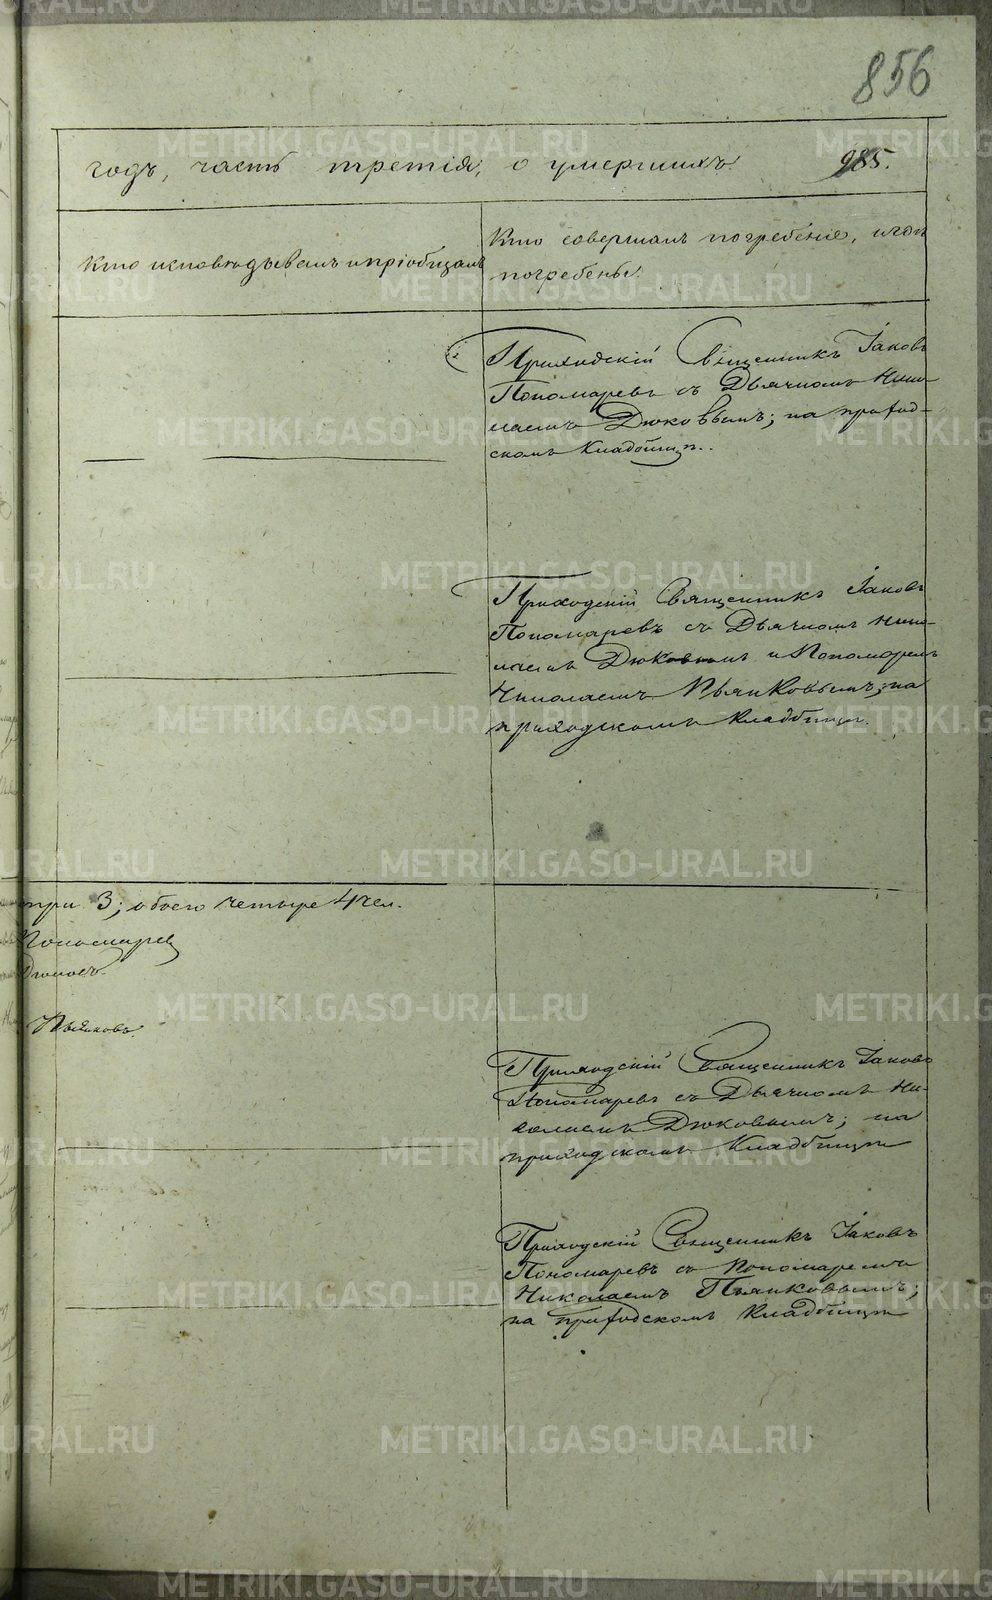 856
годъ, часть третія, о умершихъ.
985.
Кто исповѣдывалъ и пріобщалъ
Кто совершалъ погребеніе, и гдѣ
погребены.
Приходскій Священникъ Іаковъ
Пономаревъ съ Дьячкомъ Нико-
лаемъ Дюковымъ; на приход-
скомъ Кладбищѣ.
Приходскій Священникъ Іаковъ
Пономаревъ съ Дьячкомъ Нико-
лаемъ Дюковымъ и Пономаремъ
Николаемъ Пьянковымъ; на
приходскомъ Кладбищѣ.
три 3; обоего четыре 4 чел.
Пономаревъ
Дюковъ.
Пьянковъ.
Приходскій Священникъ Іаковъ
Пономаревъ съ Дьячкомъ Ни-
колаемъ Дюковымъ; на
приходскомъ Кладбищѣ
Приходскій Священникъ Іаковъ
Пономаревъ съ Пономаремъ
Николаемъ Пьянковымъ;
на приходскомъ Кладбищѣ
METRIKI.GASO-URAL.RU